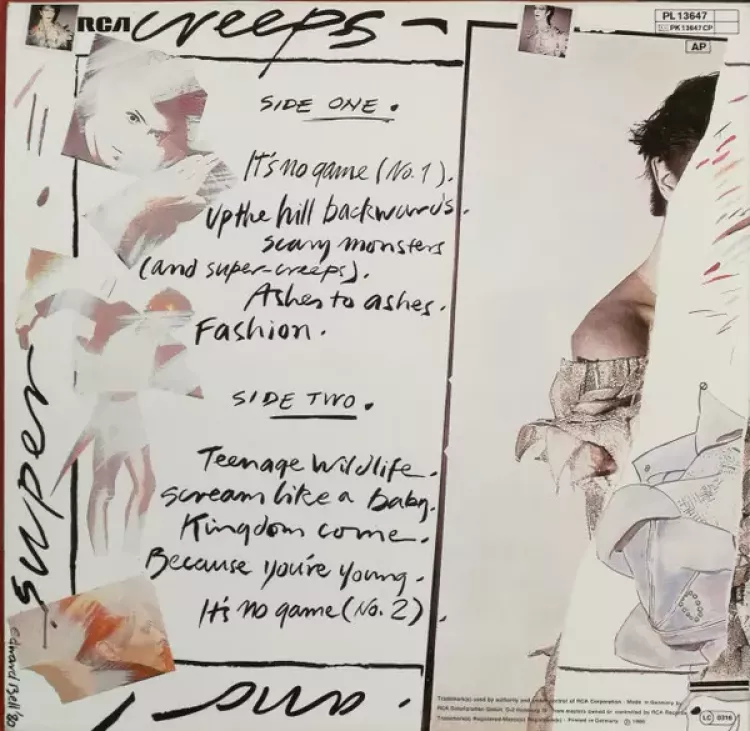 RCA creeps
PL 13647
PK 13647 CP
AP
SIDE ONE.
It's no game (No. 1).
Up the hill backwards.
scary monsters
(and super-creeps).
Ashes to ashes.
Fashion.
SIDE TWO.
Teenage Wildlife.
scream like a baby.
Kingdom come.
Because you're young.
It's no game (No. 2).
super
edward Bell '80
and
Trademark(s) used by authority and control of RCA Corporation · Made in Germany by
RCA from masters owned or controlled by RCA Records
Trademark(s) Registered · Printed in Germany
LC 0316